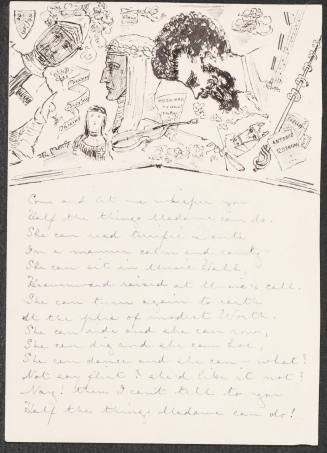 Come and let me whisper you
Half the things Madame can do.
She can read terrific Dante
In a manner calm and canty
She can sit in Music Hall,
Heavenward raised at Music's call.
She can turn again to earth
At the plea of modest Worth.
She can ride and she can row,
She can dig and she can hoe,
She can dance and she can – what?
Not say flirt? she'd like it not?
Nay! then I can't tell to you
Half the things Madame can do!